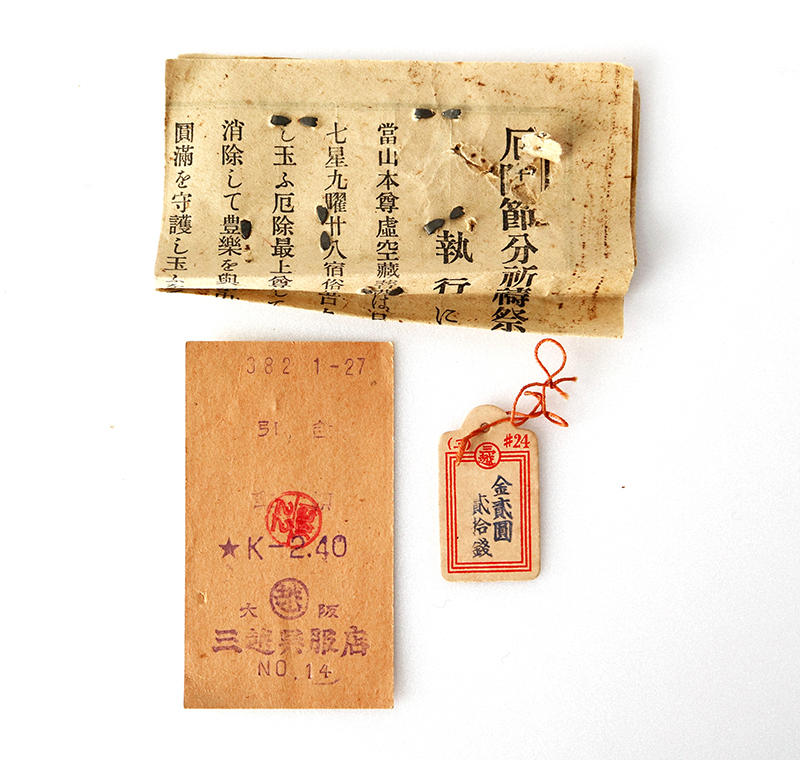 厄除節分祈禱祭
執行に
當山本尊虛空藏
七星九曜廿八宿俗
し玉ふ厄除最上尊して
消除して豊樂を與
圓滿を守護し玉
382 1-27
★K-2.40
大 越 阪
三越呉服店
NO.14
#24
三越
金貳圓
貳拾錢